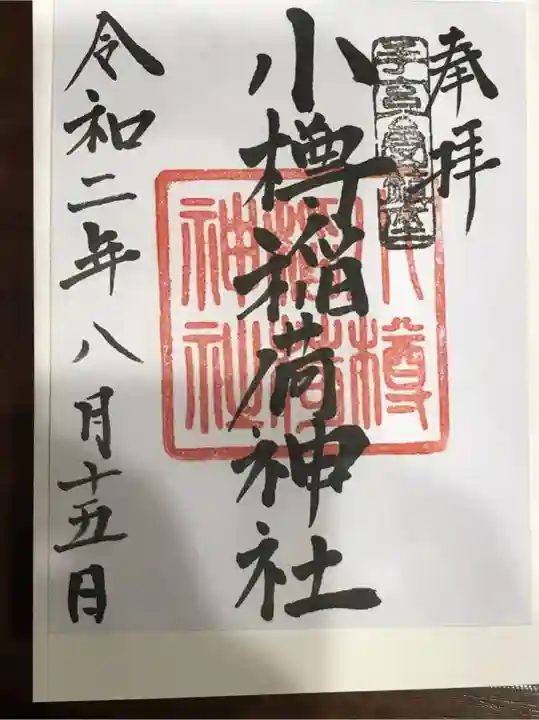 奉拝
小樽稲荷神社
小樽稲荷神社
令和二年八月十五日